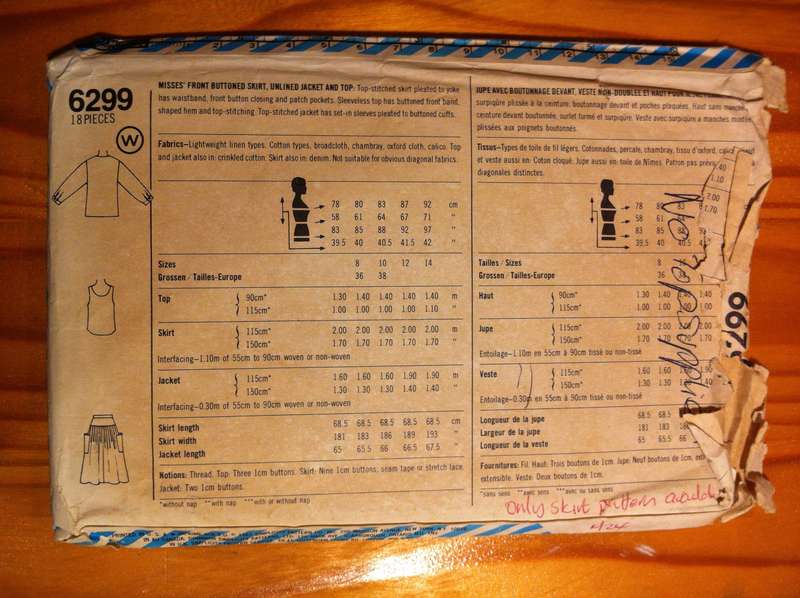 6299
18 PIECES
W
MISSES' FRONT BUTTONED SKIRT, UNLINED JACKET AND TOP: Top-stitched skirt pleated to yoke
has waistband, front button closing and patch pockets. Sleeveless top has buttoned front band,
shaped hem and top-stitching. Top-stitched jacket has set-in sleeves pleated to buttoned cuffs.
Fabrics—Lightweight linen types, Cotton types, broadcloth, chambray, oxford cloth, calico. Top
and jacket also in: crinkled cotton. Skirt also in: denim. Not suitable for obvious diagonal fabrics.
78 80 83 87 92 cm
58 61 64 67 71 "
83 85 88 92 97 "
39.5 40 40.5 41.5 42 "
Sizes 8 10 12 14
Grossen / Tailles-Europe 36 38
Top 90cm* 1.30 1.40 1.40 1.40 1.40 m
115cm* 1.00 1.00 1.00 1.00 1.10 "
Skirt 115cm* 2.00 2.00 2.00 2.00 2.00 m
150cm* 1.70 1.70 1.70 1.70 1.70 "
Interfacing—1.10m of 55cm to 90cm woven or non-woven
Jacket 115cm* 1.60 1.60 1.60 1.90 1.90 m
150cm* 1.30 1.30 1.30 1.40 1.40 "
Interfacing—0.30m of 55cm to 90cm woven or non-woven
Skirt length 68.5 68.5 68.5 68.5 68.5 cm
Skirt width 181 183 186 189 193 "
Jacket length 65 65.5 66 66.5 67.5 "
Notions: Thread, Top: Three 1cm buttons. Skirt: Nine 1cm buttons, seam tape or stretch lace.
Jacket: Two 1cm buttons.
*without nap **with nap ***with or without nap
JUPE AVEC BOUTONNAGE DEVANT, VESTE NON-DOUBLEE ET HAUT
surpiqûre plissée à la ceinture, boutonnage devant et poches plaquées. Haut sans
ceinture devant boutonnée, ourlet formé et surpiqûre. Veste avec surpiqûre a manches
plissées aux poignets boutonnés.
Tissus—Types de toile de fil légers, Cotonnades, percale, chambray, tissu d'oxford,
et veste aussi en: Coton cloqué. Jupe aussi en: toile de Nîmes. Patron pas
diagonales distinctes.
78 80 83
58 61
83 85 88 92
39.5 40 40.5
Tailles / Sizes 8
Grossen / Tailles-Europe 36 38
Haut 90cm* 1.30 1.40 1.40 1.40
115cm* 1.00 1.00 1.00 1.00
Jupe 115cm* 2.00 2.00 2.00 2.00
150cm* 1.70 1.70 1.70 1.70
Entoilage—1.10m en 55cm à 90cm tissé ou non-tissé
Veste 115cm* 1.60 1.60 1.60 1.90
150cm* 1.30 1.30 1.30
Entoilage—0.30m en 55cm à 90cm tissé ou non-tissé
Longueur de la jupe 68.5 68.5
Largeur de la jupe 181 183
Longueur de la veste 65 65.5 66
Fournitures: Fil. Haut: Trois boutons de 1cm. Jupe: Neuf boutons de 1cm,
extensible. Veste: Deux boutons de 1cm.
*sans sens **avec sens ***avec ou sans sens
1.40
1.10
2.00
1.70
No
Only skirt pattern